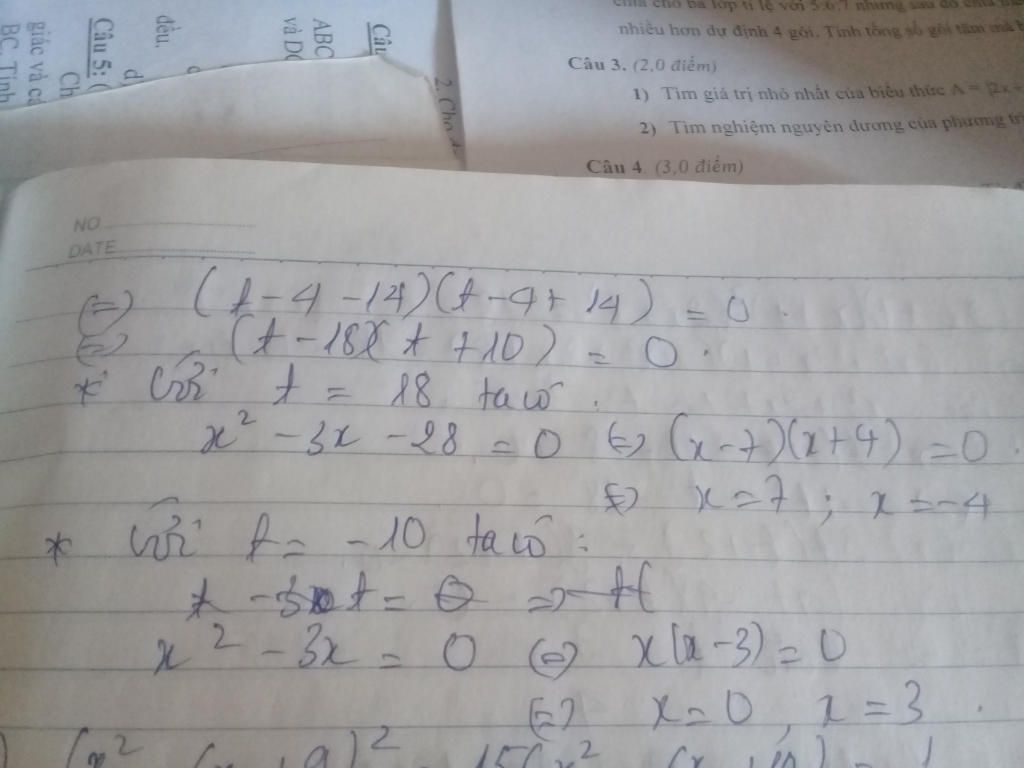 chia cho ba lớp tỉ lệ với 5:6:7 nhưng sau đó chia
nhiều hơn dự định 4 gói. Tính tổng số gói tăm mà
Câu 3. (2,0 điểm)
1) Tìm giá trị nhỏ nhất của biểu thức A = |2x +
2) Tìm nghiệm nguyên dương của phương
Câu 4. (3,0 điểm)
đều.
Câu 5:
giác và
BC. Tính
ABC
và
Câu
2. Cho
NO
DATE
(=) (t - 4 - 14)(t - 4 + 14) = 0.
(=) (t - 18)(t + 10) = 0.
* Với t = 18 ta có.
x² - 3x - 28 = 0 (=) (x - 7)(x + 4) = 0.
(=) x = 7 ; x = -4
* Với t = -10 ta có:
x² - 3x = 0 (=) x(x - 3) = 0
(=) x = 0, x = 3.